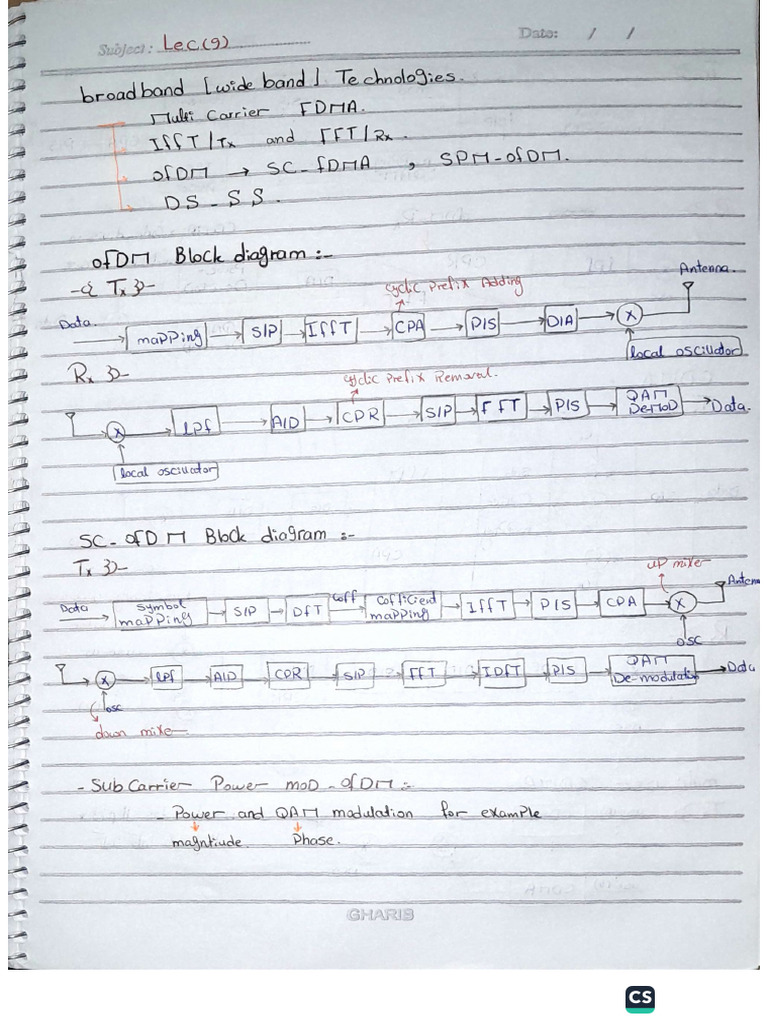 Subject: Lec(9) Date: / /
broadband [wide band] Technologies.
Multi Carrier FDMA.
IffT/Tx and FFT/Rx.
OfDM → SC-fDMA , SPM-OfDM.
DS-SS.
OfDM Block diagram :-
Tx
Cyclic Prefix Adding
Antenna.
Data. → mapping → S/P → IffT → CPA → P/S → D/A → X
local oscillator
Rx
Cyclic Prefix Removal.
X → LPf → A/D → CPR → S/P → FfT → P/S → QAM DeMOD → Data.
local oscillator
SC-OfDM Block diagram :-
Tx
up mixer
Antenn
Data → Symbol mapping → S/P → DfT → Coff → Cofficient mapping → IffT → P/S → CPA → X
osc
X → LPf → A/D → CPR → S/P → FFT → IDfT → P/S → QAM De-modulator → Data
osc
down mixer
- Sub Carrier Power moD-OfDM :-
- Power and QAM modulation for example
magntiude Phase.
GHARIB
CS